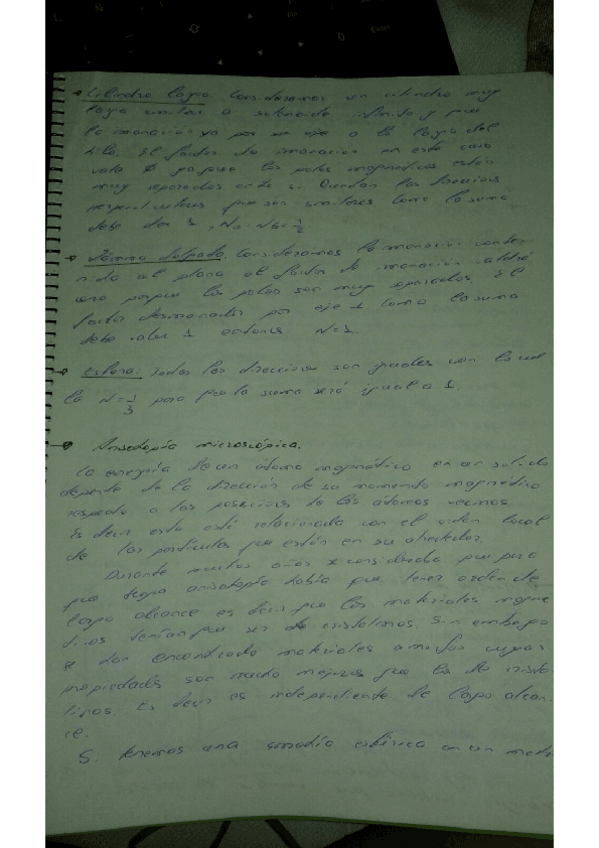 → Cilindro largo. Consideramos un cilindro muy
largo similar a solenoide infinito y que
la imanación va por un eje a lo largo del
hilo. El factor de imanación en este caso
vale 0 ya que los polos magnéticos están
muy separados entre si. Quedan las direcciones
perpendiculares que son similares como la suma
debe dar 1, Na = Nb = 1/2
→ Lámina delgada. Consideramos la imanación conte-
nida al plano el factor de imanación valdrá
cero porque los polos son muy separados. El
factor desmanador por eje ⊥ como la suma
debe valer 1 entonces N=1.
→ Esfera. Todas las direcciones son iguales con lo cual
la N = 1/3 para que la suma será igual a 1.
→ Anisotropía microscópica.
La energía de un átomo magnético en un sólido
depende de la dirección de su momento magnético
respecto a las posiciones de los átomos vecinos.
Es decir esto está relacionado con el orden local
de las partículas que están en su alrededor.
Durante muchos años se consideraba que para
que tenga anisotropía había que tener orden de
largo alcance es decir que los materiales magné
ticos tenían que ser cristalinos. Sin embargo
se han encontrado materiales amorfos cuyas
propiedades son mucho mejores que los de crista-
linos. Es decir es independiente de largo alcan-
ce.
Si tenemos una simetría esférica en un